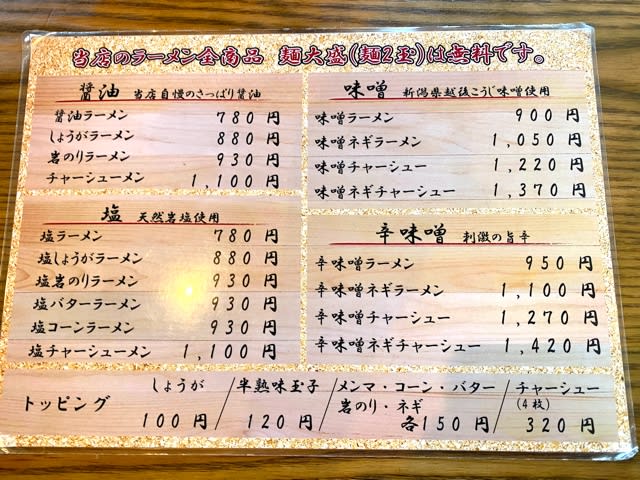 当店のラーメン全商品 麺大盛(麺2玉)は無料です。
醤油 当店自慢のさっぱり醤油
醤油ラーメン 780円
しょうがラーメン 880円
岩のりラーメン 930円
チャーシューメン 1,100円
塩 天然岩塩使用
塩ラーメン 780円
塩しょうがラーメン 880円
塩岩のりラーメン 930円
塩バターラーメン 930円
塩コーンラーメン 930円
塩チャーシューメン 1,100円
味噌 新潟県越後こうじ味噌使用
味噌ラーメン 900円
味噌ネギラーメン 1,050円
味噌チャーシュー 1,220円
味噌ネギチャーシュー 1,370円
辛味噌 刺激の旨辛
辛味噌ラーメン 950円
辛味噌ネギラーメン 1,100円
辛味噌チャーシュー 1,270円
辛味噌ネギチャーシュー 1,420円
トッピング
しょうが
100円
半熟味玉子
120円
メンマ・コーン・バター
岩のり・ネギ
各150円
チャーシュー
(4枚)
320円